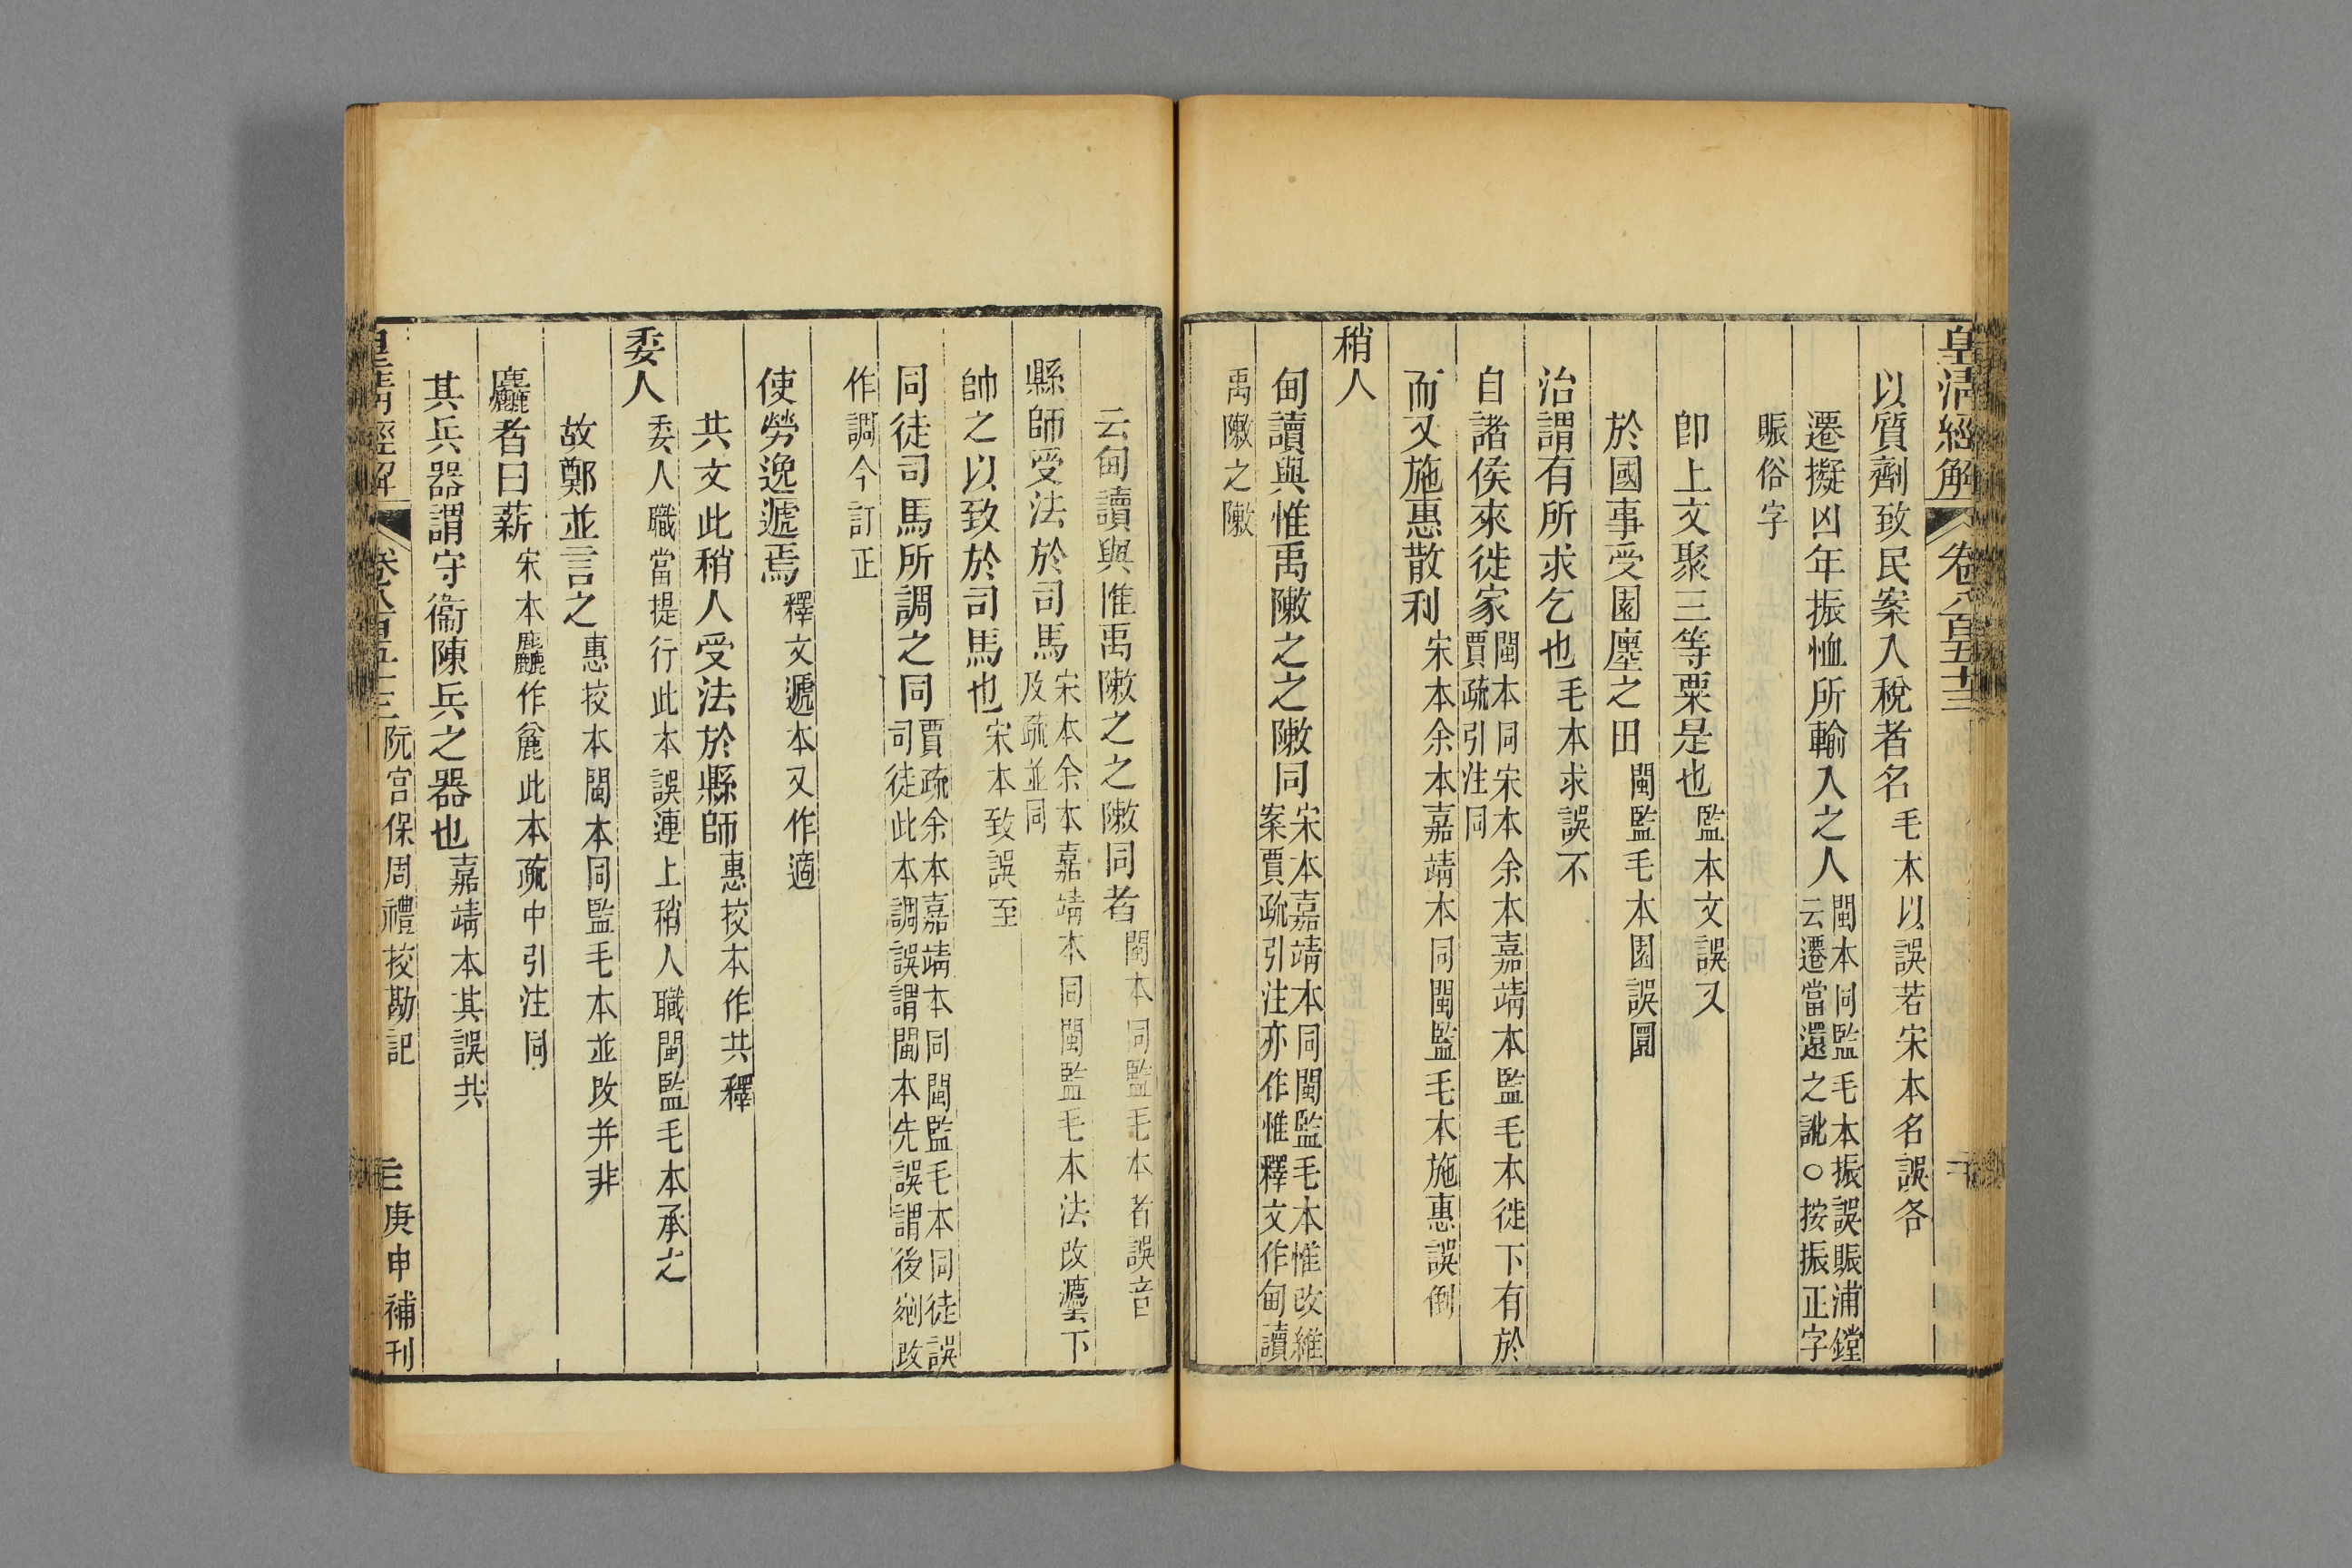 皇清經解 卷八百五十三
以質劑致民案入稅者名毛本以誤若宋本名誤各
遷擬凶年振恤所輸入之人閩本同監毛本振誤賑浦鏜
云遷當還之訛○按振正字
賑俗字
卽上文聚三等粟是也監本文誤又
於國事受園廛之田閩監毛本園誤圜
治謂有所求乞也毛本求誤不
自諸侯來徙家閩本同宋本余本嘉靖本監毛本徙下有於
賈疏引注同
而又施惠散利宋本余本嘉靖本同閩監毛本施惠誤倒
稍人
甸讀與惟禹敶之之敶同宋本嘉靖本同閩監毛本惟改維
案賈疏引注亦作惟釋文作甸讀
禹敶之敶
云甸讀與惟禹敶之之敶同者閩本同監毛本者誤音
縣師受法於司馬宋本余本嘉靖本同閩監毛本法改灋下
及疏並同
帥之以致於司馬也宋本致誤至
同徒司馬所調之同賈疏余本嘉靖本同閩監毛本同徒誤
司徒此本調誤謂閩本先誤謂後剜改
作調今訂正
使勞逸遞焉釋文遞本又作適
共文此稍人受法於縣師惠挍本作共釋
委人委人職當提行此本誤連上稍人職閩監毛本承之
故鄭並言之惠挍本閩本同監毛本並改并非
麤者曰薪宋本麤作麄此本疏中引注同
其兵器謂守衞陳兵之器也嘉靖本其誤共
皇淸經解 卷八百五十三 阮宮保周禮挍勘記 庚申補刊